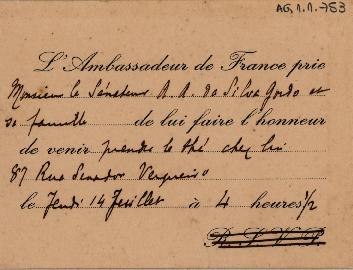 AG.1.1.753
L'Ambassadeur de France prie
Monsieur le Sénateur A. A. da Silva Gordo et
sa famille de lui faire l'honneur
de venir prendre le thé chez lui
87 Rua Senador Vergueiro
le Jeudi 14 Juillet à 4 heures 1/2
R.S.V.P.